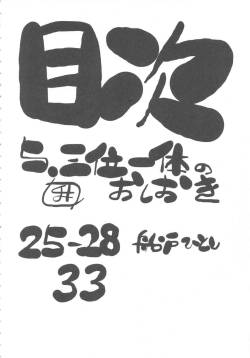 目次
5.三位一体の
囲 おしおき
25-28 船戸ひとし
33